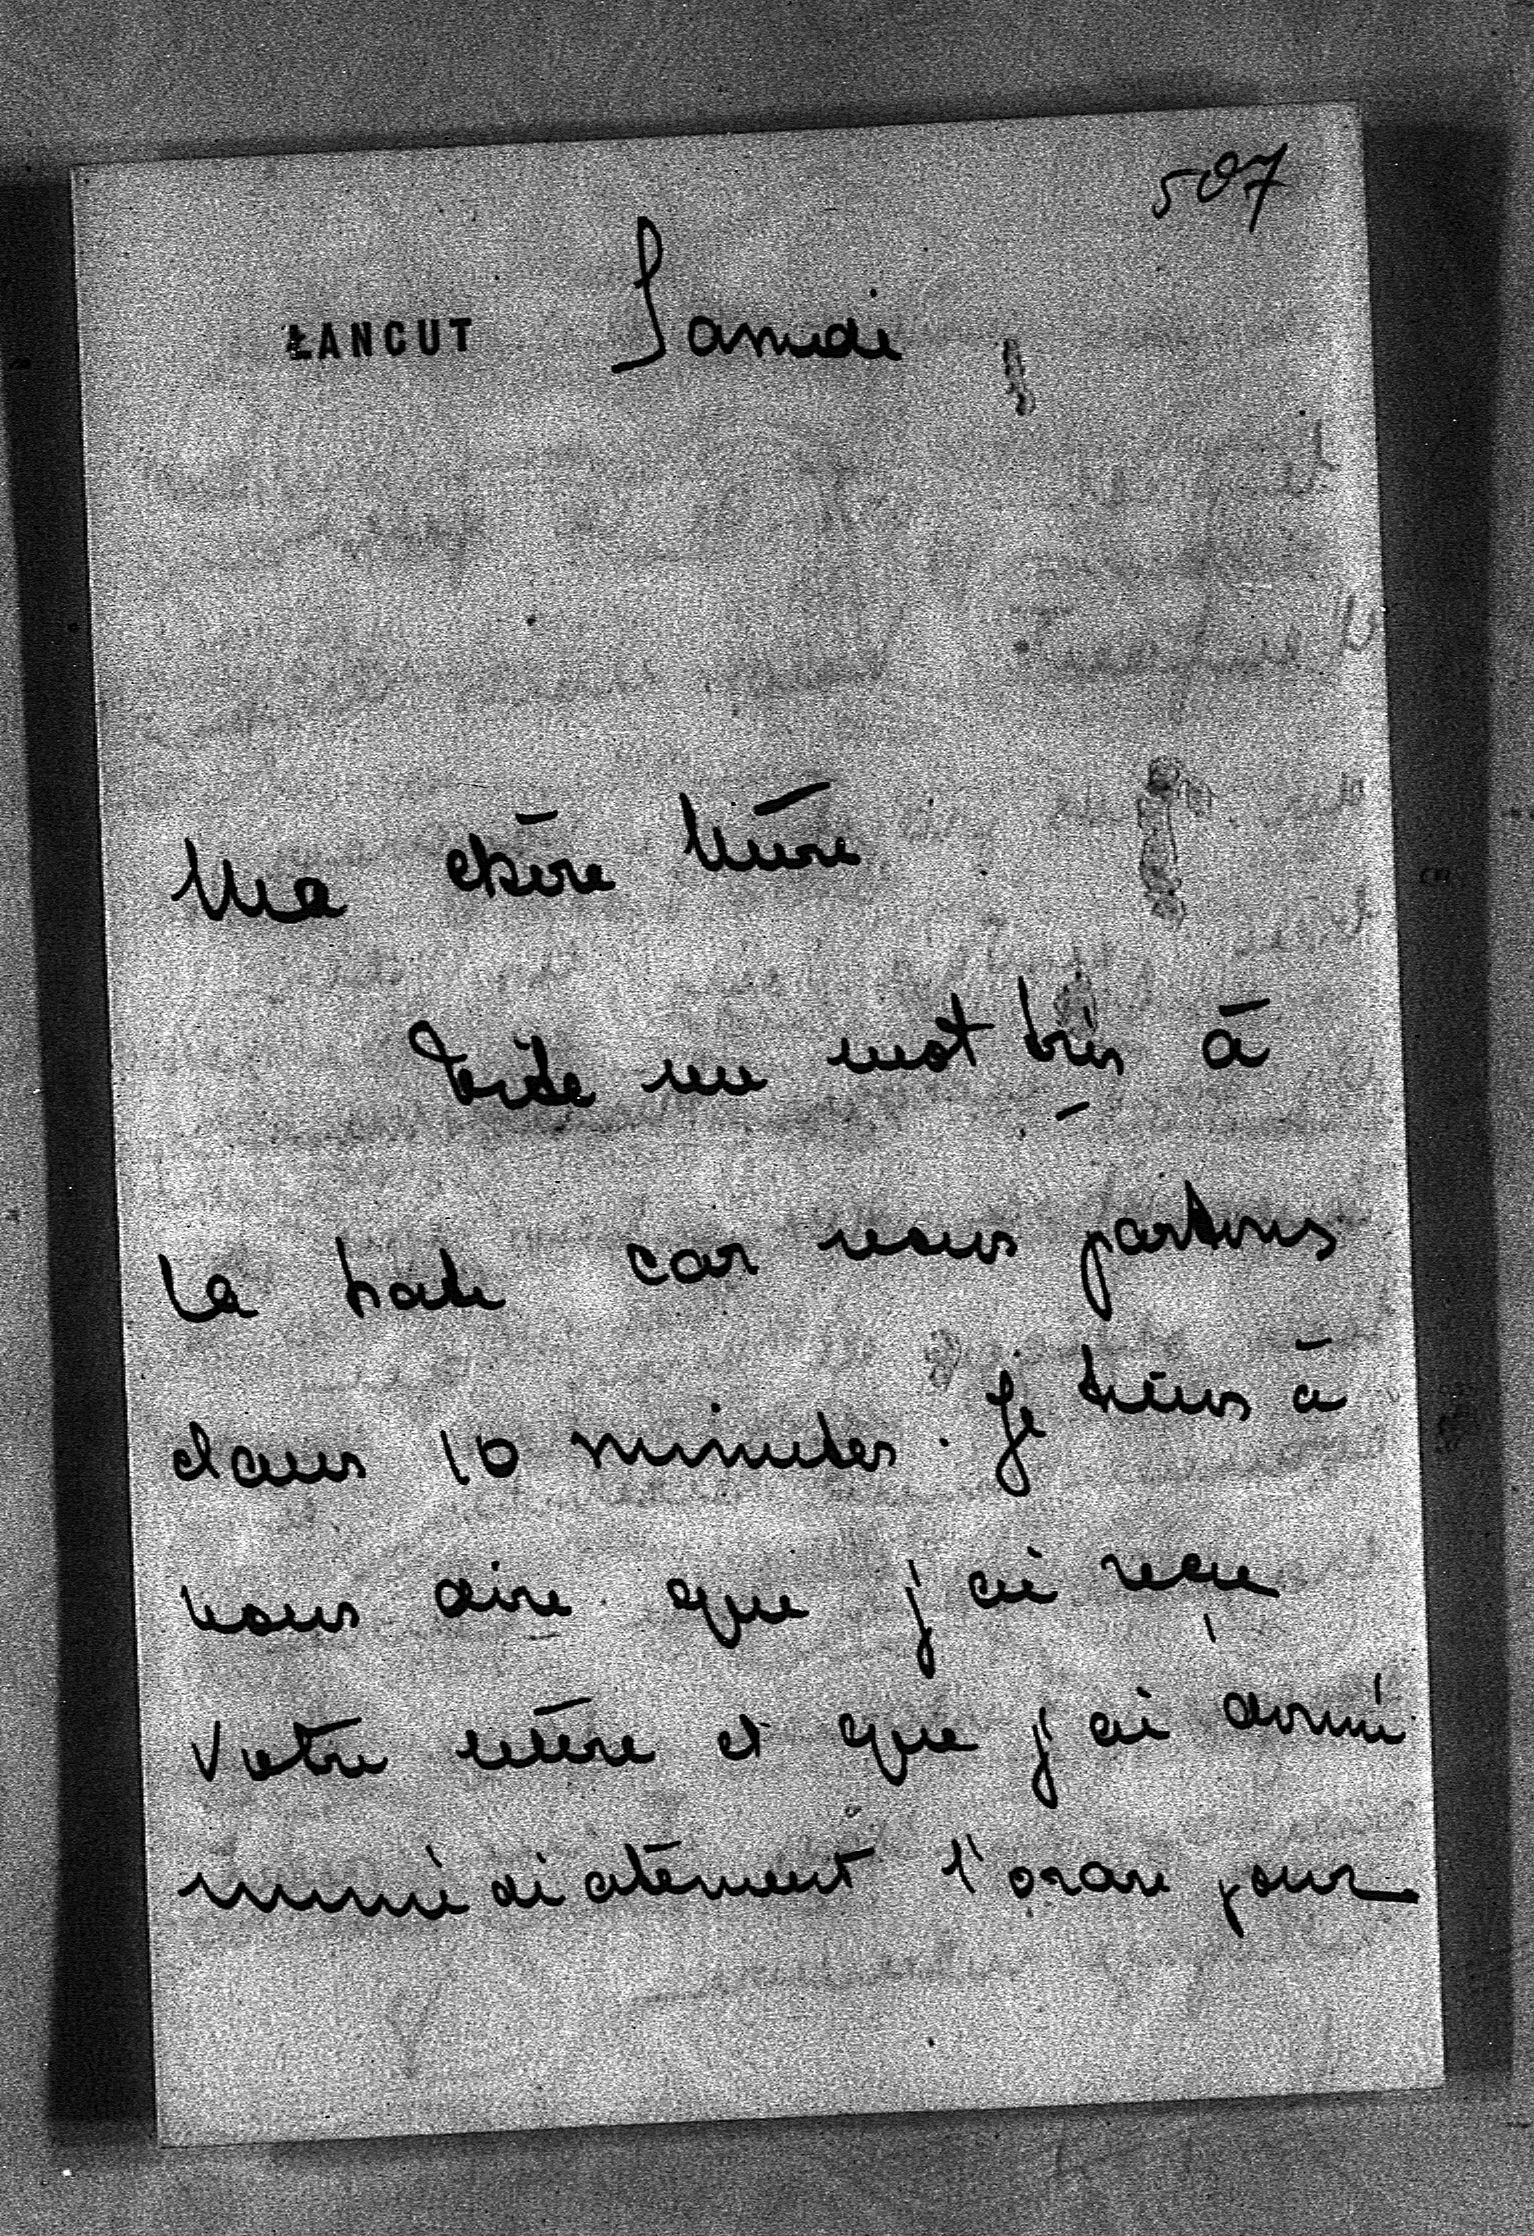 507
ŁANCUT Samedi
Ma chère Mère
Vite un mot très à
la hate car nous partons
dans 10 minutes. Je tiens à
vous dire que j'ai reçu
Votre lettre et que j'ai donné
immédiatement l'ordre pour